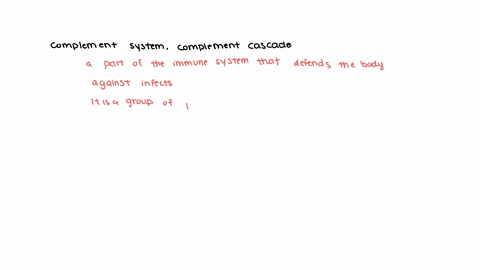 complement system, complement cascade
a part of the immune system that defends the body
against infects
it is a group of